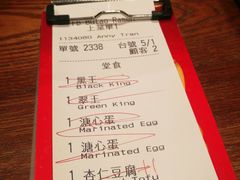 Butao Ramen
上菜單1
1134080 Anny Tran
單號 2338 台號 5/1
顧客 2
堂食
1 黑王
Black King
1 翠王
Green King
1 溏心蛋
Marinated Egg
1 溏心蛋
Marinated Egg
1 杏仁豆腐
Tofu